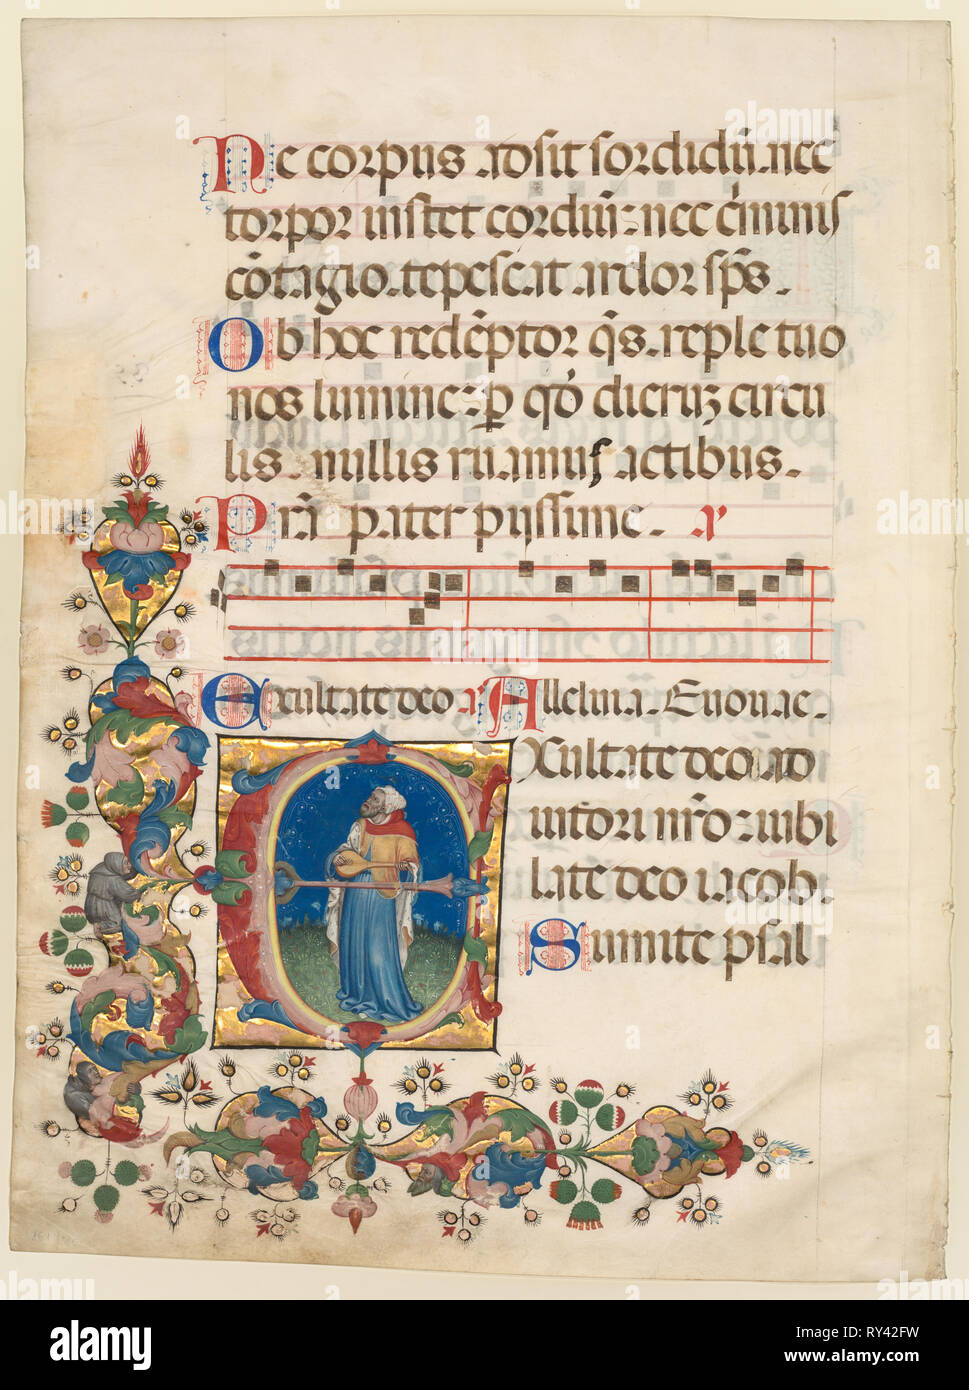 Ne corpus adsit sordidū. nec
torpor instet cordiū: nec c̄minis
cōtagio. tepescat ardor sp̄s.
Ob hoc redēptor q̄s. reple tuo
nos lumine: p̱ qd̄ dierꝝ circu
lis. nullis ruamus actibus.
Prā pater pijssime.
Exultate deo Alleluia. Euouae.
EXultate deo adiu
tori nr̄o: iubi
late deo iacob.
Sumite psal
alamy
alamy
Image ID: RY42FW
www.alamy.com